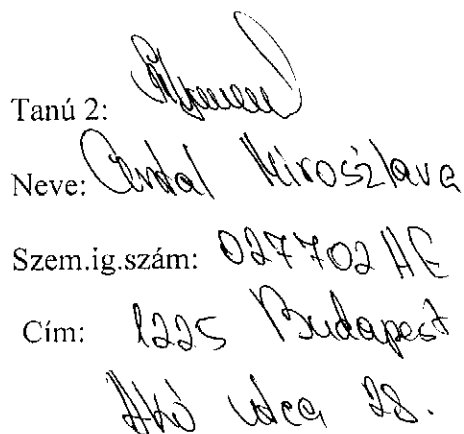 Tanú 2:
Neve: Antal Miroszlava
Szem.ig.szám: 027702 AE
Cím: 1225 Budapest
Akó utca 28.